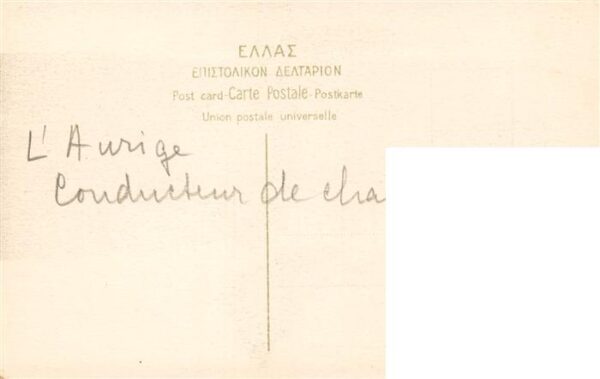 ΕΛΛΑΣ
ΕΠΙΣΤΟΛΙΚΟΝ ΔΕΛΤΑΡΙΟΝ
Post card-Carte Postale-Postkarte
Union postale universelle
L'Aurige
Conducteur de cha